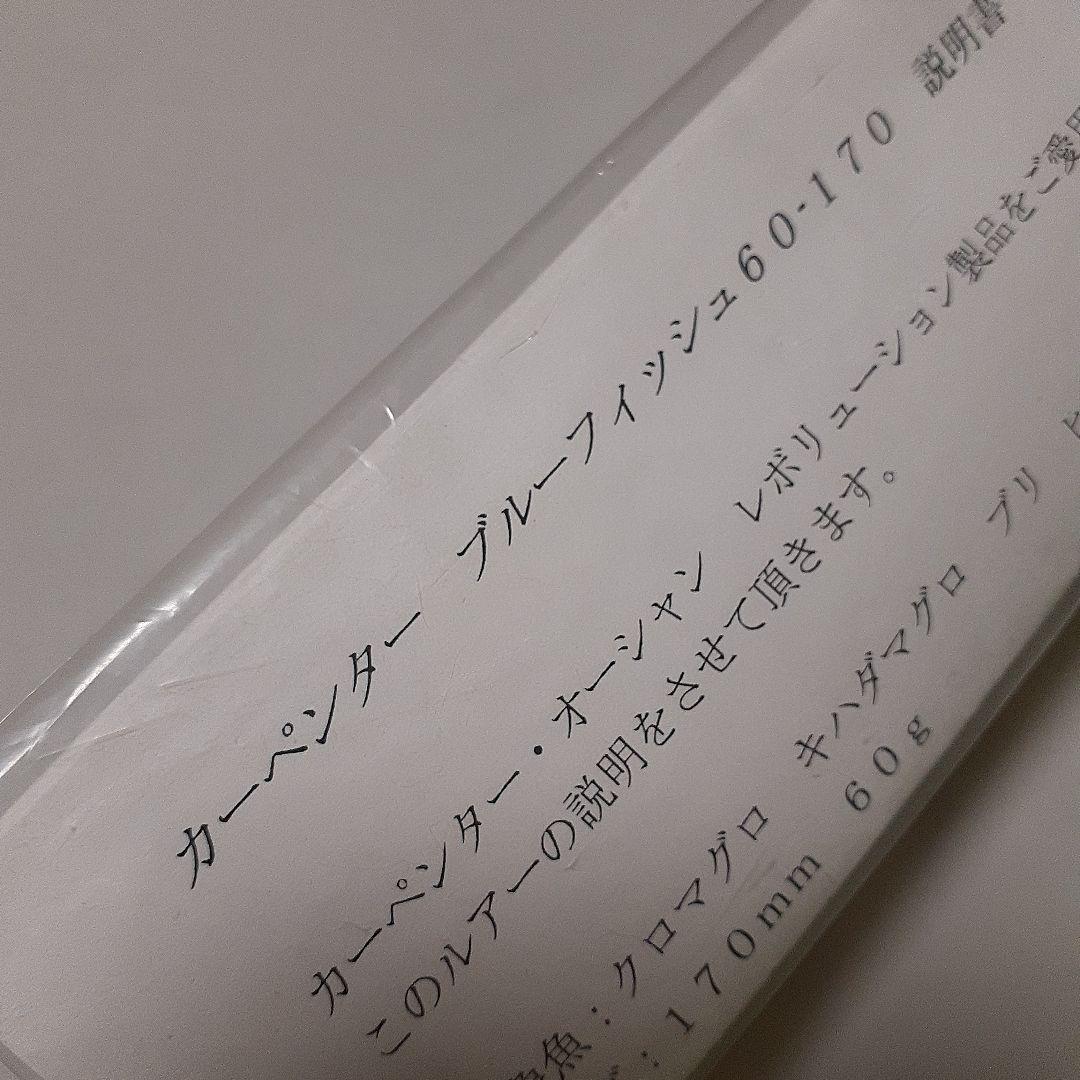 カーペンター ブルーフィッシュ60-170 説明書
カーペンター・オーシャン レボリューション製品をご愛用
このルアーの説明をさせて頂きます。
魚：クロマグロ キハダマグロ ブリ ヒ
：170mm 60g